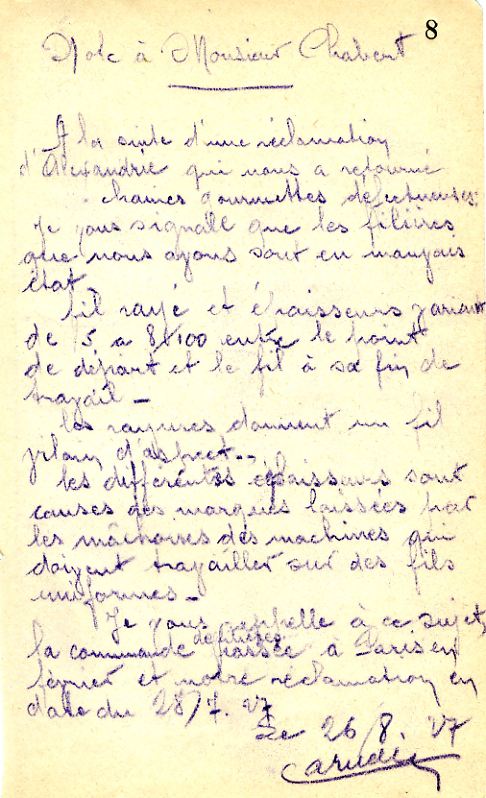 8
Note à Monsieur Chabert
A la suite d'une réclamation
d'Alexandrie qui nous a retourné
chaines gourmettes défectueuses,
Je vous signalle que les filières
que nous avons sont en mauvais
état
fil rayé et épaisseurs variant
de 5 a 8/100 entre le point
de départ et le fil à sa fin de
travail -
les rayures donnent un fil
d'aspect -
les différentes épaisseurs sont
causes des marques laissées par
les mâchoires des machines qui
doivent travailler sur des fils
uniformes -
Je vous rappelle à ce sujet,
la commande de filières passée à Paris en
février et notre réclamation en
date du 28/7.27
Le 26/8.27